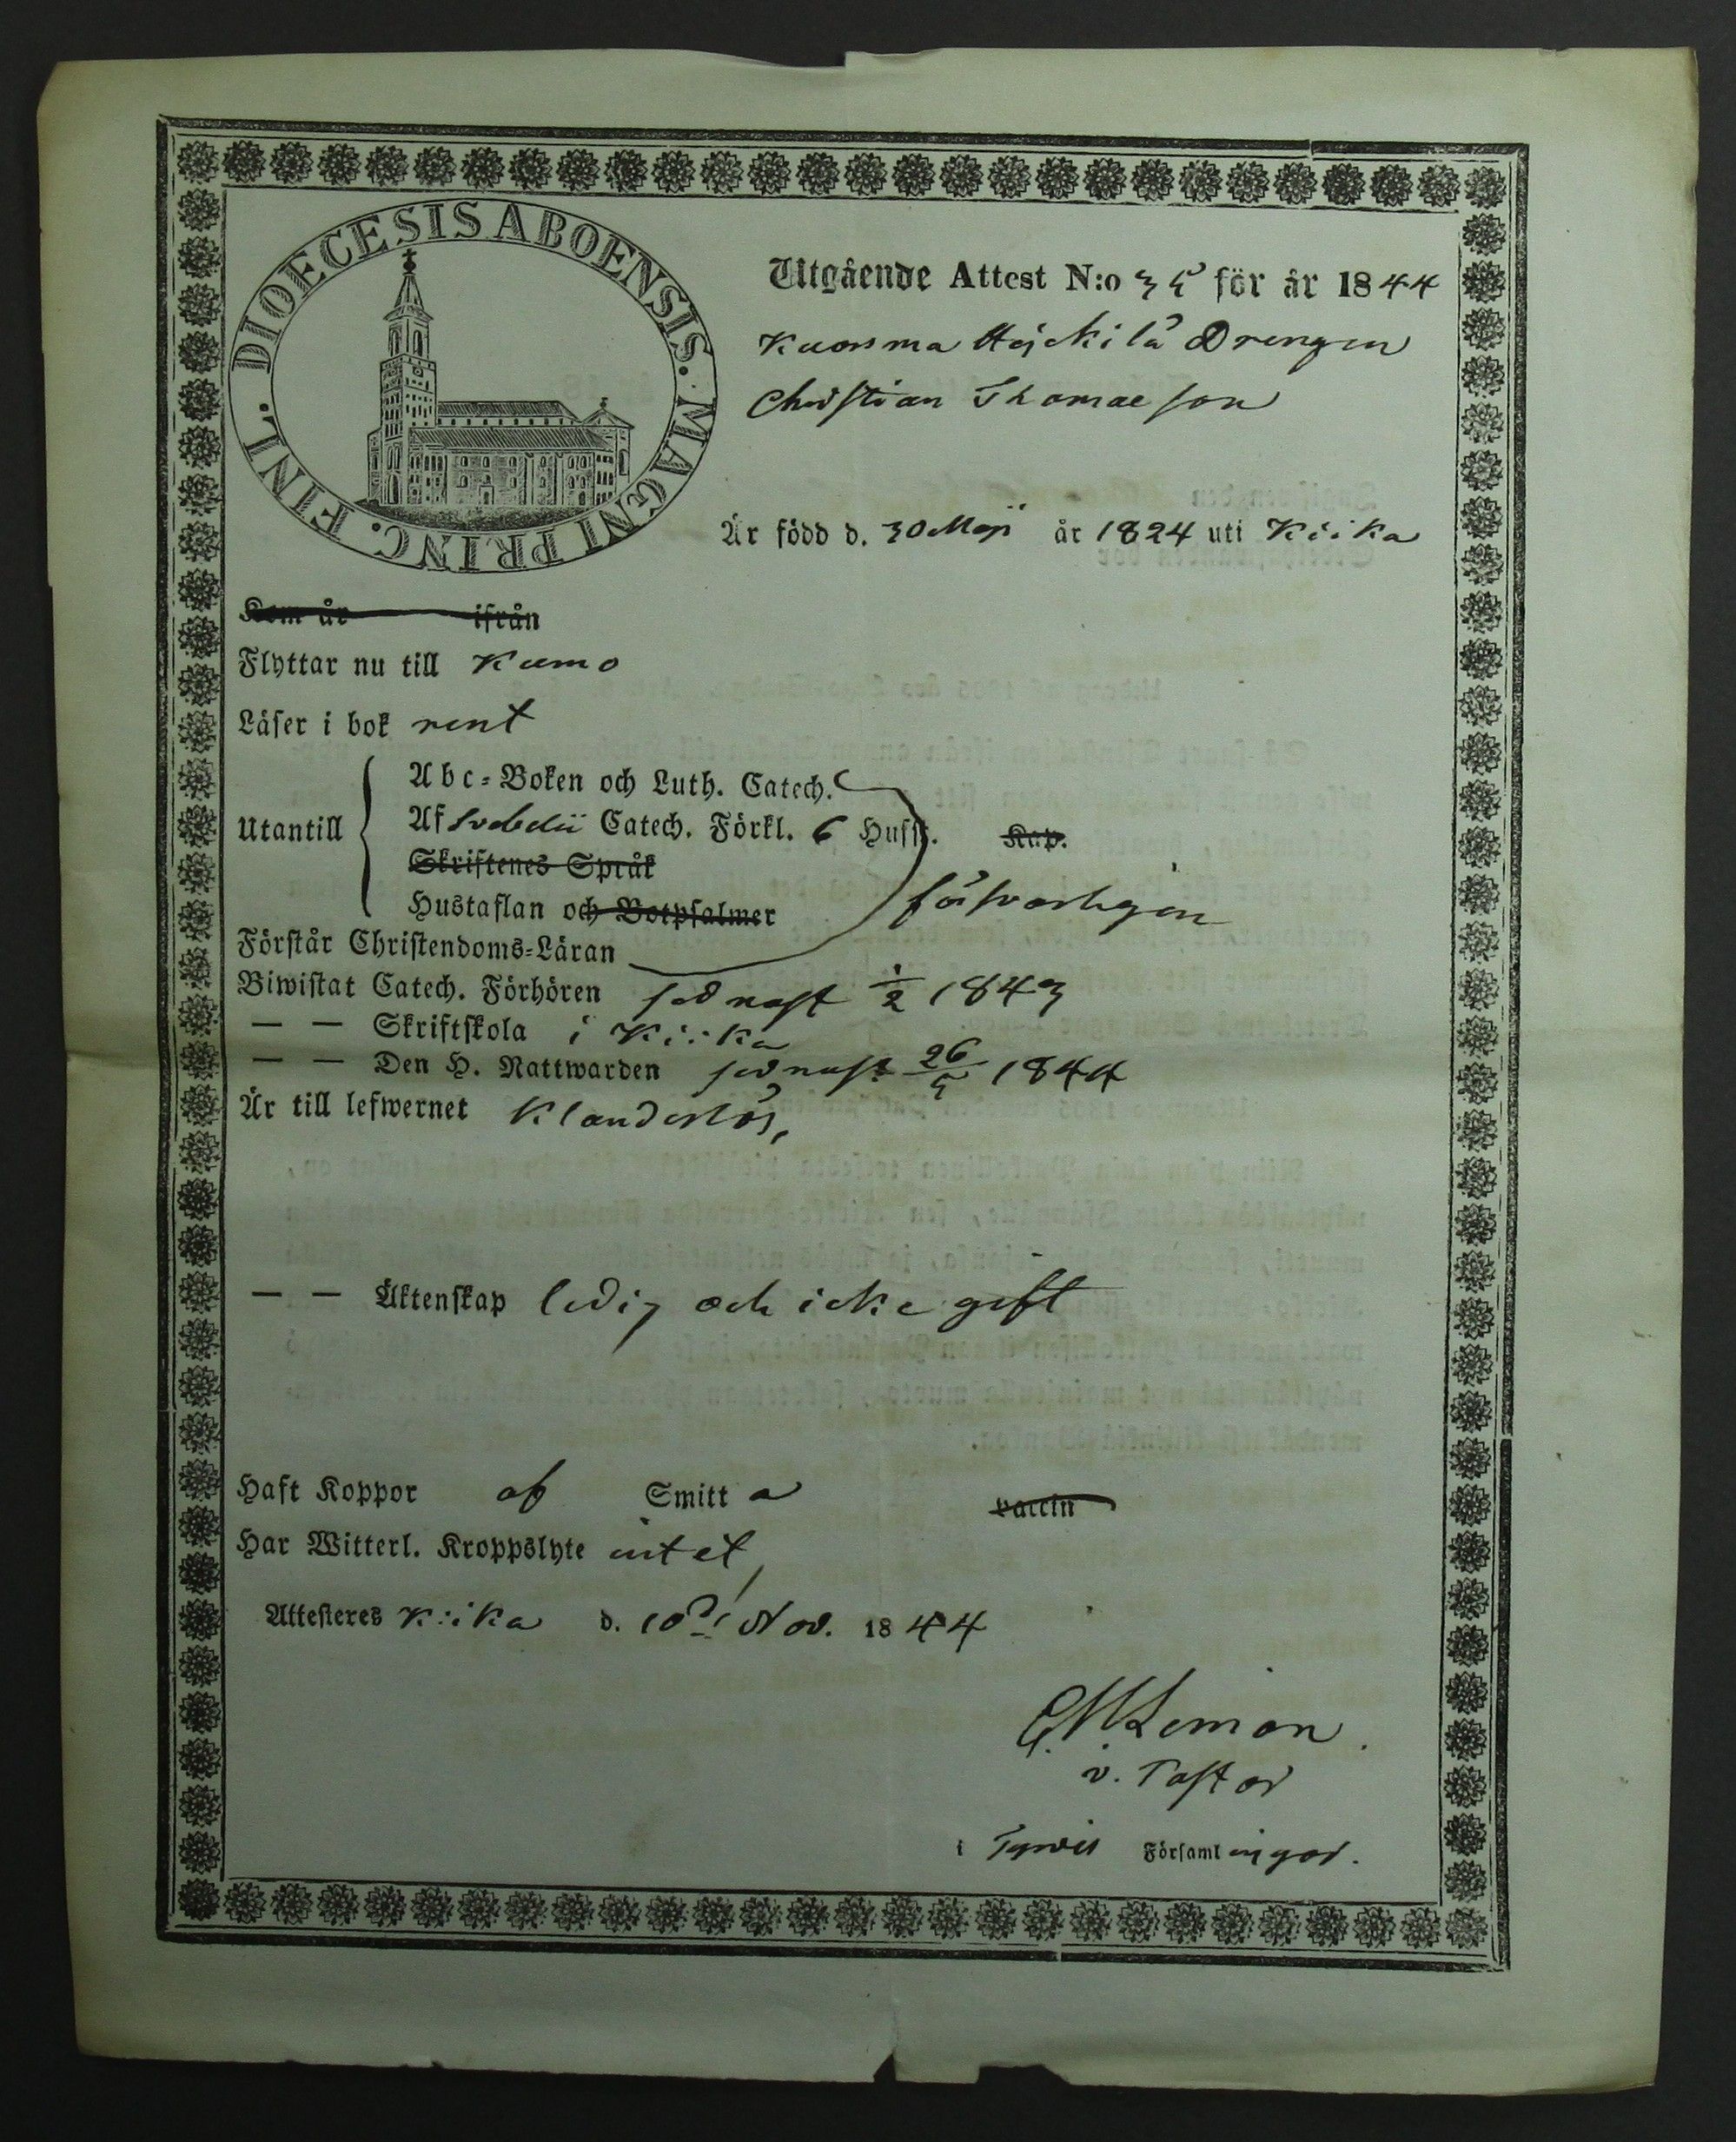 DIOECESIS ABOENSIS. MAGNI PRINC. FINL.
Utgående Attest N:o 35 för år 1844
Kuoosma Heickilä Drengen
Christian Thomae son
Är född d. 30 Maji år 1824 uti Kiika
Kom år ifrån
Flyttar nu till Kumo
Läser i bok rent
Abc-Boken och Luth. Catech.
Utantill Af Svebelii Catech. Förkl. 6 Hufst. Kap.
Skriftenes Språk
Hustaflan och Botpsalmer försvarligen
Förstår Christendoms-Läran
Biwistat Catech. Förhören sednast 1/2 1843
— — Skriftskola i Kiika
— — Den H. Nattwarden sednast 26/5 1844
Är till lefwernet Klanderlös,
— — Äktenskap ledig och icke gift
Haft Koppor af Smitta vaccin
Har Witterl. Kroppslyte intet
Attesteres Kiika d. 10de Nov. 1844
Leman
v. Pastor
i Tyrvis Församlingar.